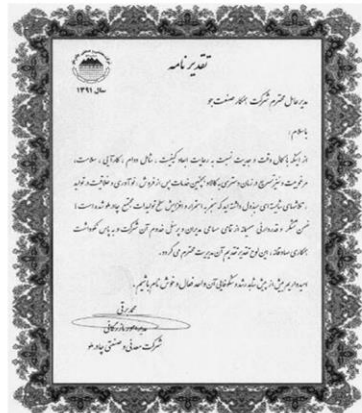 تقدیر نامه
سال ۱۳۹۱
مدیرعامل محترم شرکت همکار صنعت جو
باسلام؛
از اینکه با کمال دقت و جدیت نسبت به رعایت ابعاد کیفیت، شامل دوام، کارآیی، سلامت،
مرغوبیت و نیز تسریع در زمان دسترسی به کالا و همچنین خدمات پس از فروش، نوآوری و خلاقیت در تولید
تلاشهای شایسته‌ای مبذول داشته‌اید که منجر به استمرار و افزایش سطح تولیدات مجتمع چادرملو شده است؛
ضمن تشکر و قدردانی صمیمانه از تمامی مساعی مدیران و پرسنل خدوم آن شرکت و به پاس نکوداشت
همکاری صادقانه، این لوح تقدیر تقدیم آن مدیریت محترم می‌گردد.
امیدواریم بیش از پیش شاهد رشد و شکوفایی آن واحد فعال و خوش نام باشیم.
محمد برقی
مدیر امور بازرگانی
شرکت معدنی و صنعتی چادرملو